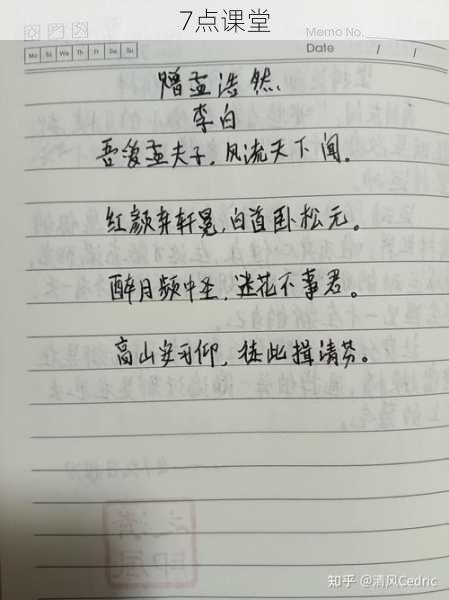 7点课堂
Memo No.
Mo Tu We Th Fr Sa Su
Date / /
赠孟浩然
李白
吾爱孟夫子，风流天下闻。
红颜弃轩冕，白首卧松云。
醉月频中圣，迷花不事君。
高山安可仰，徒此揖清芬。
知乎 @清风Cedric